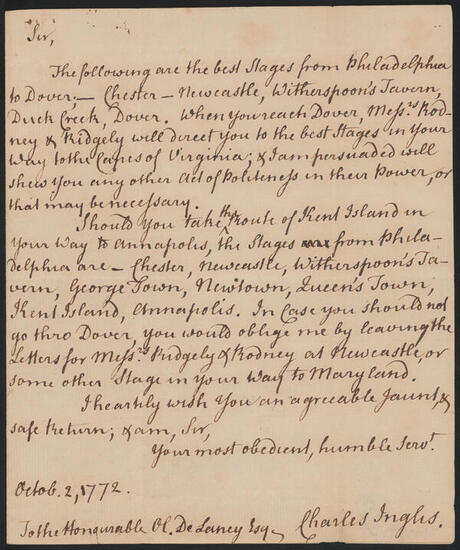 Sir,
The following are the best Stages from Philadelphia
to Dover,— Chester — Newcastle, Witherspoon's Tavern,
Duck Creek, Dover. When you reach Dover, Mess.rs Rod-
ney & Ridgely will direct you to the best Stages in your
Way to the Capes of Virginia; & I am persuaded will
shew you any other Act of Politeness in their Power, or
that may be necessary.
Should You take the Route of Kent Island in
Your Way to Annapolis, the Stages from Phila-
delphia are — Chester, Newcastle, Witherspoon's Ta-
vern, George Town, Newtown, Queen's Town,
Kent Island, Annapolis. In Case you should not
go thro Dover, you would oblige me by leaving the
Letters for Mess.rs Ridgely & Rodney at Newcastle, or
some other Stage in your Way to Maryland.
I heartily wish You an agreeable Jaunt, &
safe Return; & am, Sir,
Your most obedient, humble Servt.
Octob. 2, 1772.
To the Honourable Ol. De Lancy Esq. Charles Inglis.